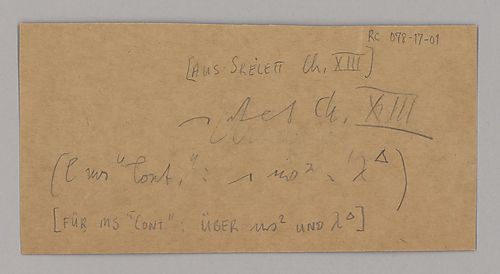 RC 098-17-01
[AUS SKELETT Ch. XIII]
Ch. XIII
( ms "Cont.": λ^Δ)
[FÜR MS "CONT": ÜBER ms² UND λ^Δ]